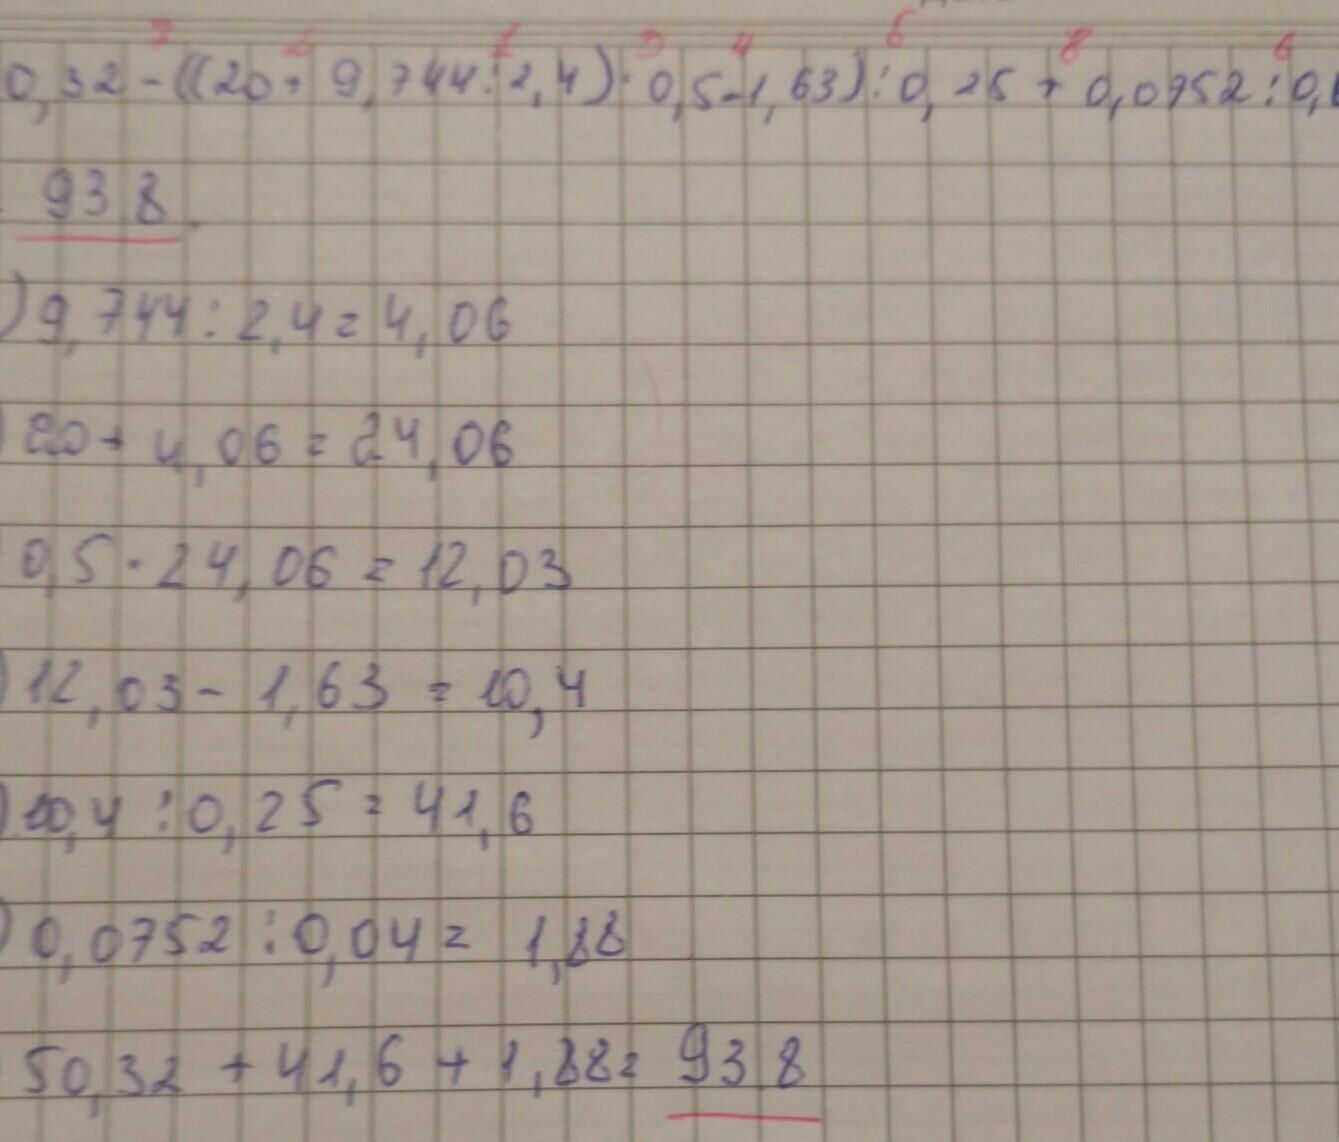 7 2 1 3 4 5 8 6
0,32-((20+9,744:2,4)·0,5-1,63):0,25+0,0752:0,
93,8
)9,744:2,4=4,06
)20+4,06=24,06
0,5·24,06=12,03
)12,03-1,63=10,4
)10,4:0,25=41,6
)0,0752:0,04=1,88
50,32+41,6+1,88=93,8